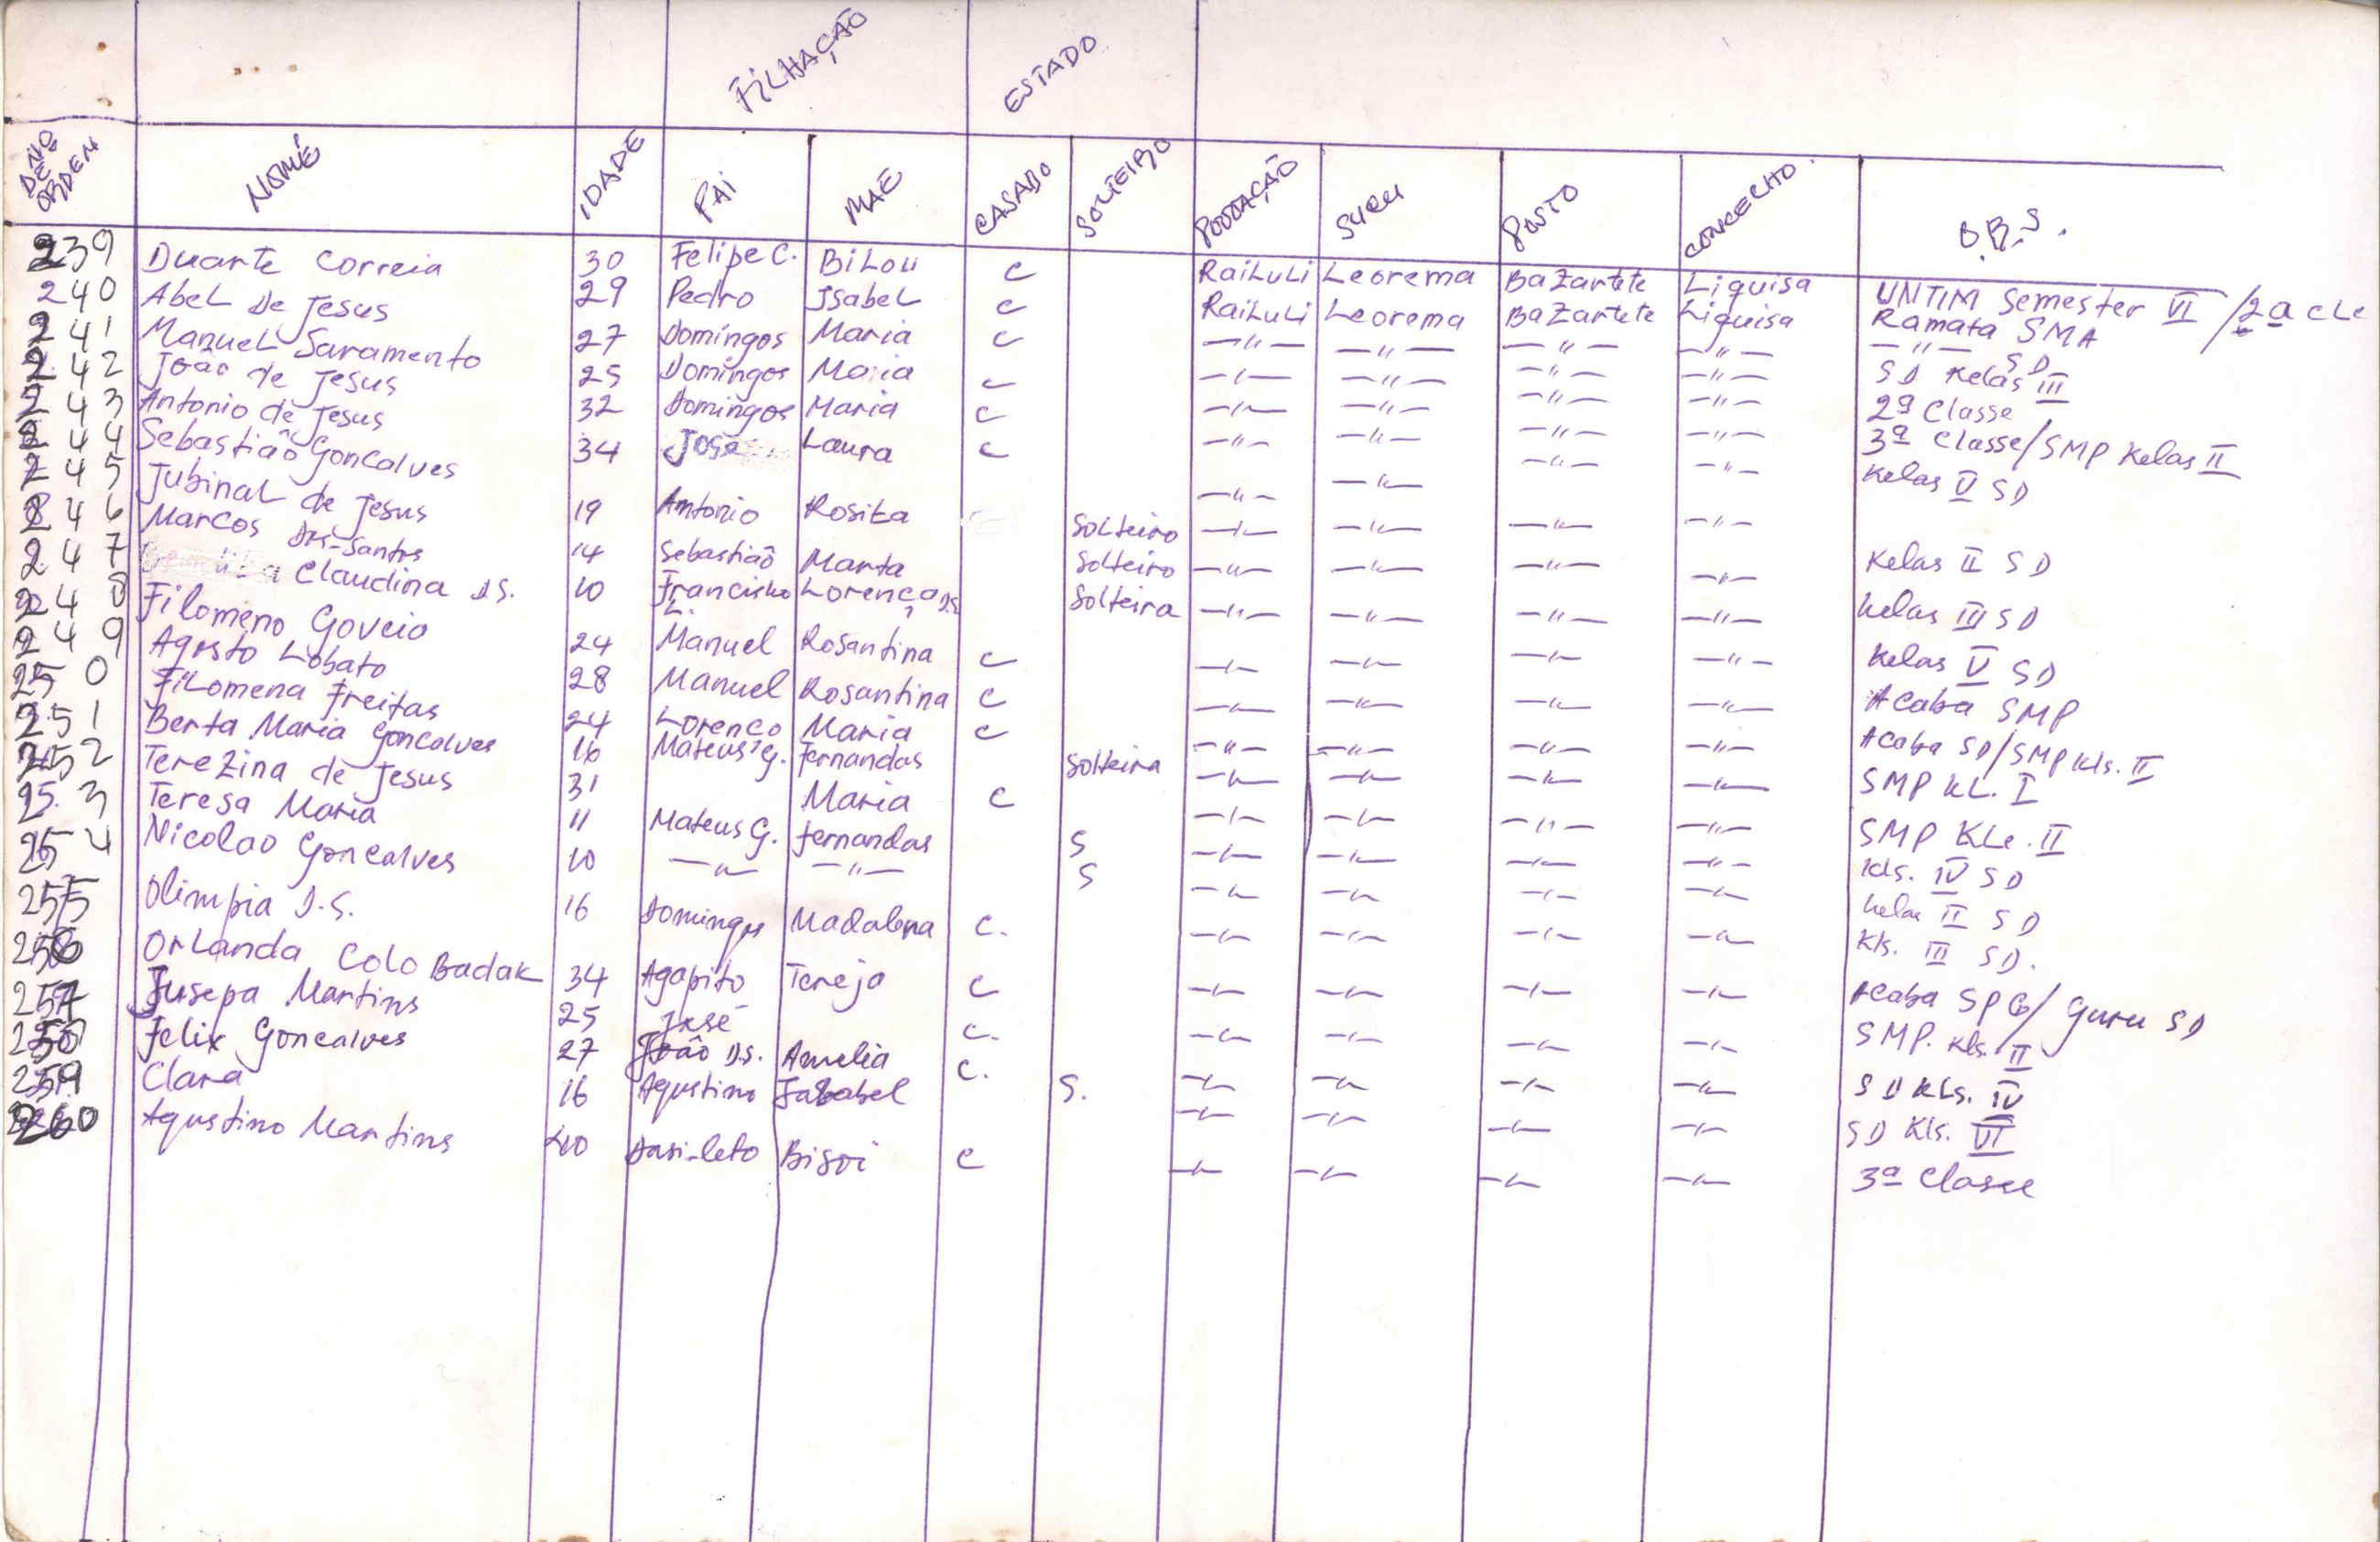 FILHAÇÃO ESTADO
NO DE ORDEN NOMÉ IDADE PAI MAE CASADO SOLTEIRO POVOAÇÃO SUCU POSTO CONCELHO. O.B.S.
239 Duarte Correia 30 Felipe C. BiLou C RaiLuLi Leorema BaZartete Liquisa UNTIM Semester VI /2a cLe
240 AbeL De Jesus 29 Pedro IsabeL C RaiLuLi Leorema BaZartete Liquisa Ramata SMA
241 ManueL Saramento 27 Domingos Maria C —"— —"— —"— —"— —"— SD
242 João de Jesus 25 Domingos Maria C —"— —"— —"— —"— SD Kelas III
243 Antonio de Jesus 32 Domingos Maria C —"— —"— —"— —"— 2a Classe
244 Sebastião Goncalves 34 José Laura C —"— —"— —"— —"— 3a Classe/SMP Kelas II
245 JubinaL de Jesus 19 Antonio Rosita SoLteiro —"— —"— —"— —"— Kelas V SD
246 Marcos Dos-Santos 14 Sebastião Marta Solteiro —"— —"— —"— —"— Kelas II SD
247 Claudina D.S. 10 Francisko L. Lorença D.S. Solteira —"— —"— —"— —"— Kelas III SD
248 Filomeno Goveio 24 Manuel Rosantina C —"— —"— —"— —"— Kelas V SD
249 Agosto Lobato 28 Manuel Rosantina C —"— —"— —"— —"— Acaba SMP
250 FiLomena Freitas 24 Lorenco Maria C —"— —"— —"— —"— Acaba SD/SMP Kls. II
251 Berta Maria Goncalves 16 Mateus G. Fernandas Solteira —"— —"— —"— —"— SMP KL. I
252 TereZina de Jesus 31 Maria C —"— —"— —"— —"— SMP KLe. II
253 Teresa Maria 11 Mateus G. Fernandas S —"— —"— —"— —"— Kls. IV SD
254 Nicolao Goncalves 10 —"— —"— S —"— —"— —"— —"— Kelas II SD
255 Olimpia D.S. 16 Domingos Madalena C. —"— —"— —"— —"— Kls. III SD.
256 OrLanda Colo Badak 34 Agapito Tereja C —"— —"— —"— —"— Acaba SPG/ Guru SD
257 Jusepa Martins 25 José C. —"— —"— —"— —"— SMP. Kls. II
258 Felix Goncalves 27 João D.S. Amelia C. —"— —"— —"— —"— SD KLs. IV
259 Clara 16 Agustino S. —"— —"— —"— —"— SD Kls. VI
260 Agustino Martins 40 Dasi-leto Bisoi C —"— —"— —"— —"— 3a Classe